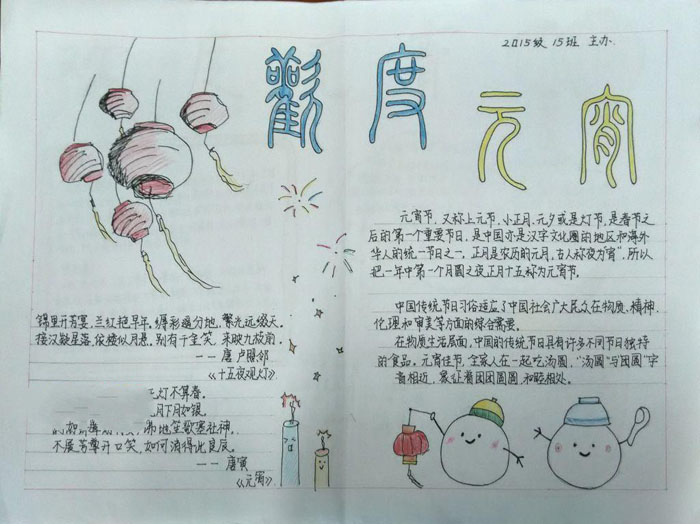 2015级 15班 主办.
歡度元宵
锦里开芳宴，兰红艳早年。缛彩遥分地，繁光远缀天。
接汉疑星落，依楼似月悬，别有千金笑，来映九枝前。
——唐 卢照邻
《十五夜观灯》
灯不算春。
月下月如银。
沸地笙歌赛社神。
不展芳尊开口笑，如何消得此良辰。
——唐寅
《元宵》
元宵节，又称上元节，小正月、元夕或是灯节，是春节之
后的第一个重要节日，是中国亦是汉字文化圈的地区和海外
华人的统一节日之一，正月是农历的元月，古人称夜为"宵"，所以
把一年中第一个月圆之夜正月十五称为元宵节。
中国传统节日习俗适应了中国社会广大民众在物质、精神、
伦理和审美等方面的综合需要。
在物质生活层面，中国的传统节日具有许多不同节日独特
的食品。元宵佳节，全家人在一起吃汤圆，"汤圆"与"团圆"字
音相近，象征着团团圆圆和睦相处。